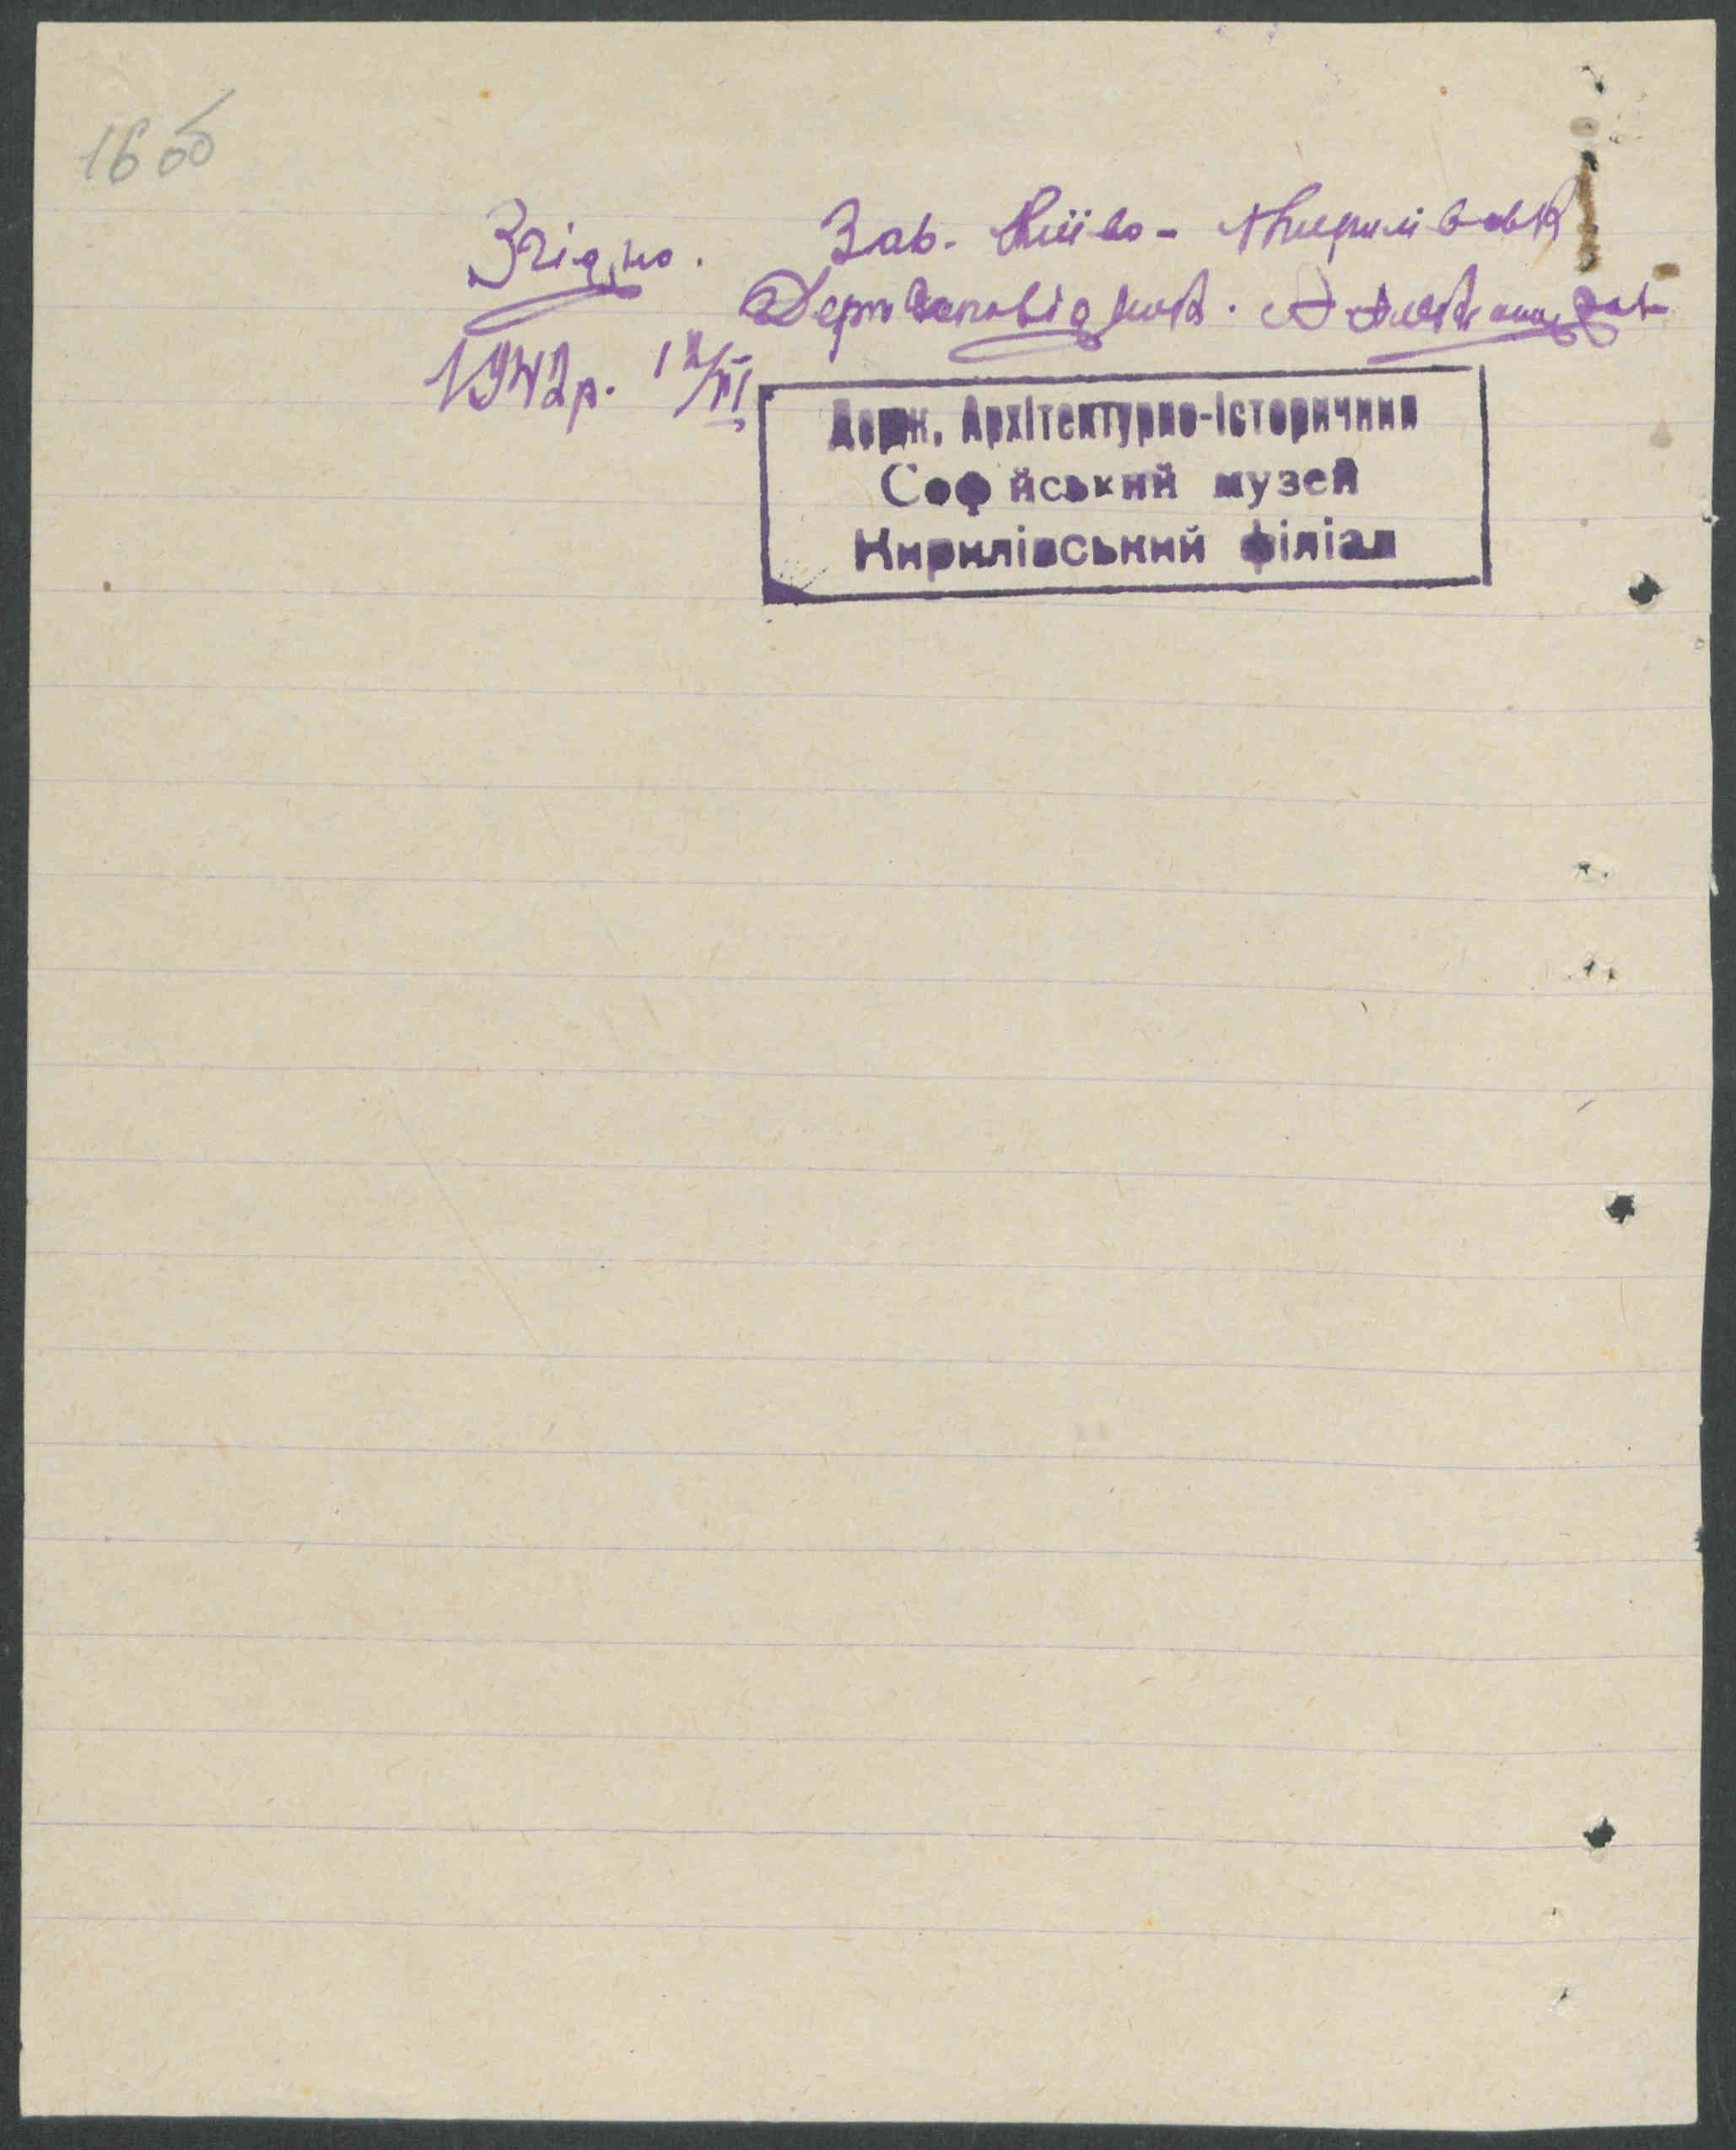 16 об
Згідно. Зав. Київо-Кирилівськ
Держ Заповідник. А Александров
1942р. 12/VI
Держ. Архітектурно-Історичний
Соф йський музей
Кирилівський філіал